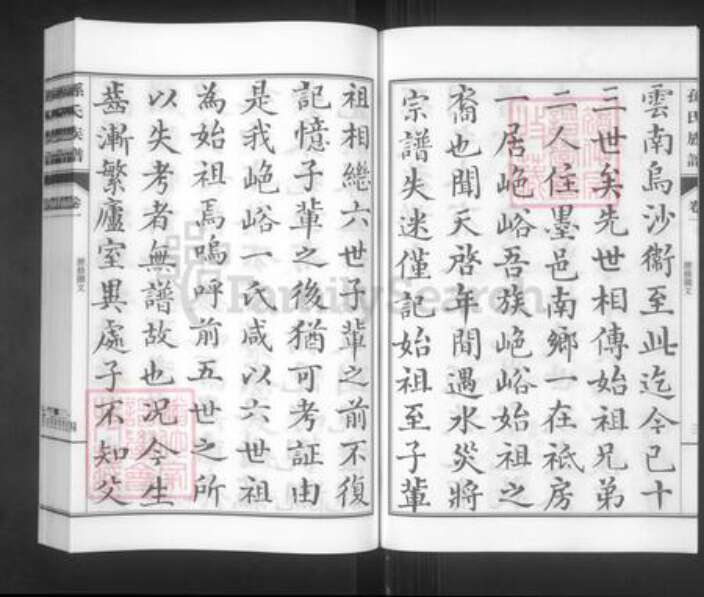 雲南烏沙衛至此迄今已十
三世矣先世相傳始祖兄弟
二人住墨邑南鄉一在祇房
一居峗峪吾族峗峪始祖之
裔也聞天啓年間遇水災將
宗譜失迷僅記始祖至子輩
祖相總六世子輩之前不復
記憶子輩之後猶可考証由
是我峗峪一氏咸以六世祖
為始祖焉嗚呼前五世之所
以失考者無譜故也況今生
齒漸繁廬室異處子不知父
孫氏族譜
卷一
孫氏族譜
卷一
FamilySearch